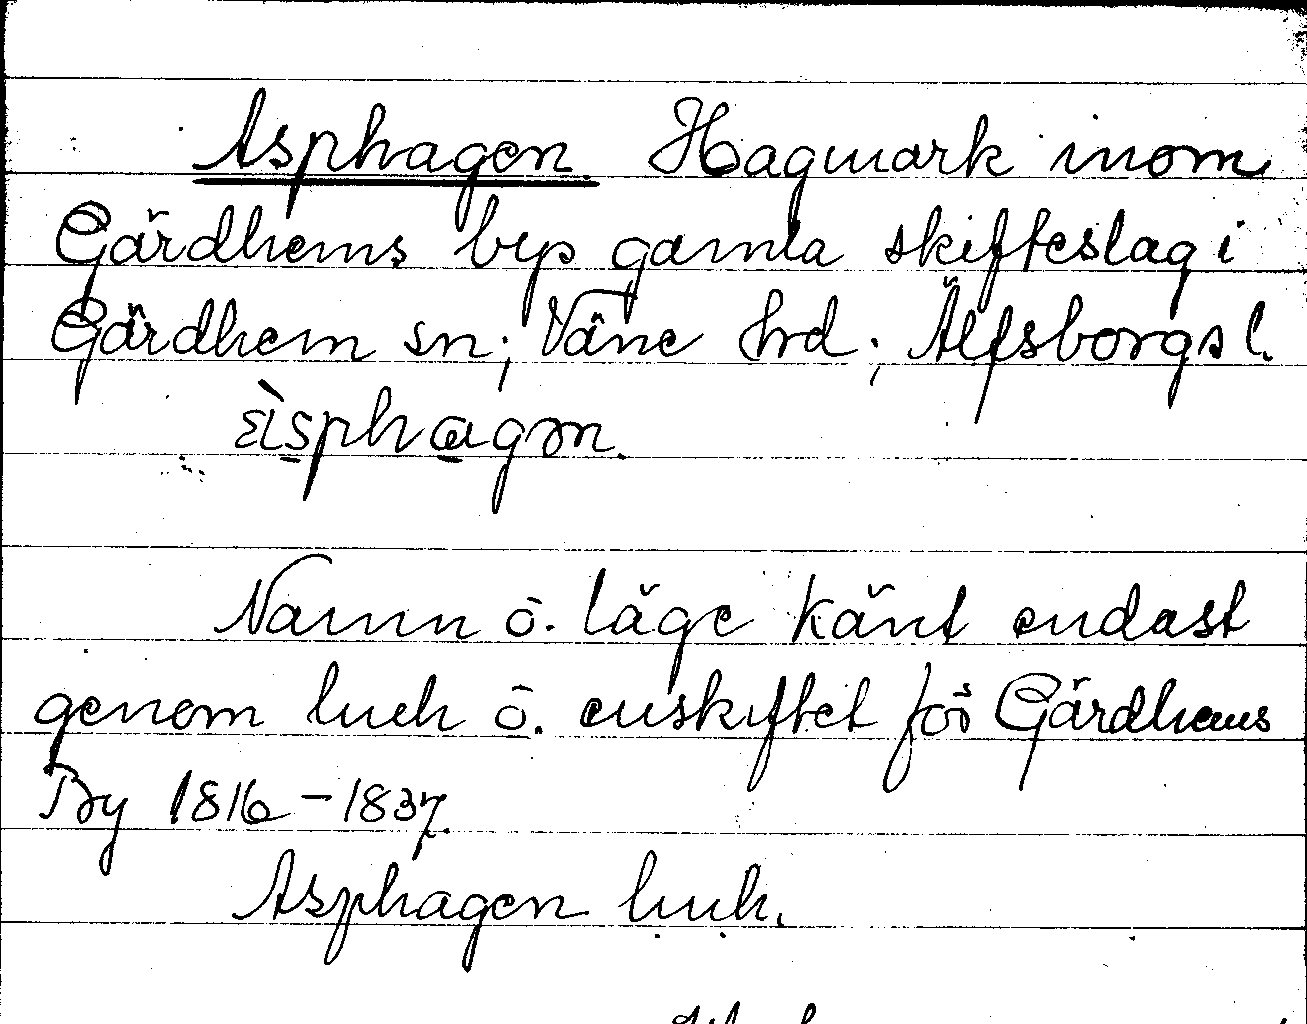 Asphagen. Hagmark inom
Gärdhems bys gamla skifteslag i
Gärdhem sn; Väne hrd; Älfsborgs l.
Namn o. läge känt endast
genom o. enskiftet för Gärdhems
By 1816-1837.
Asphagen